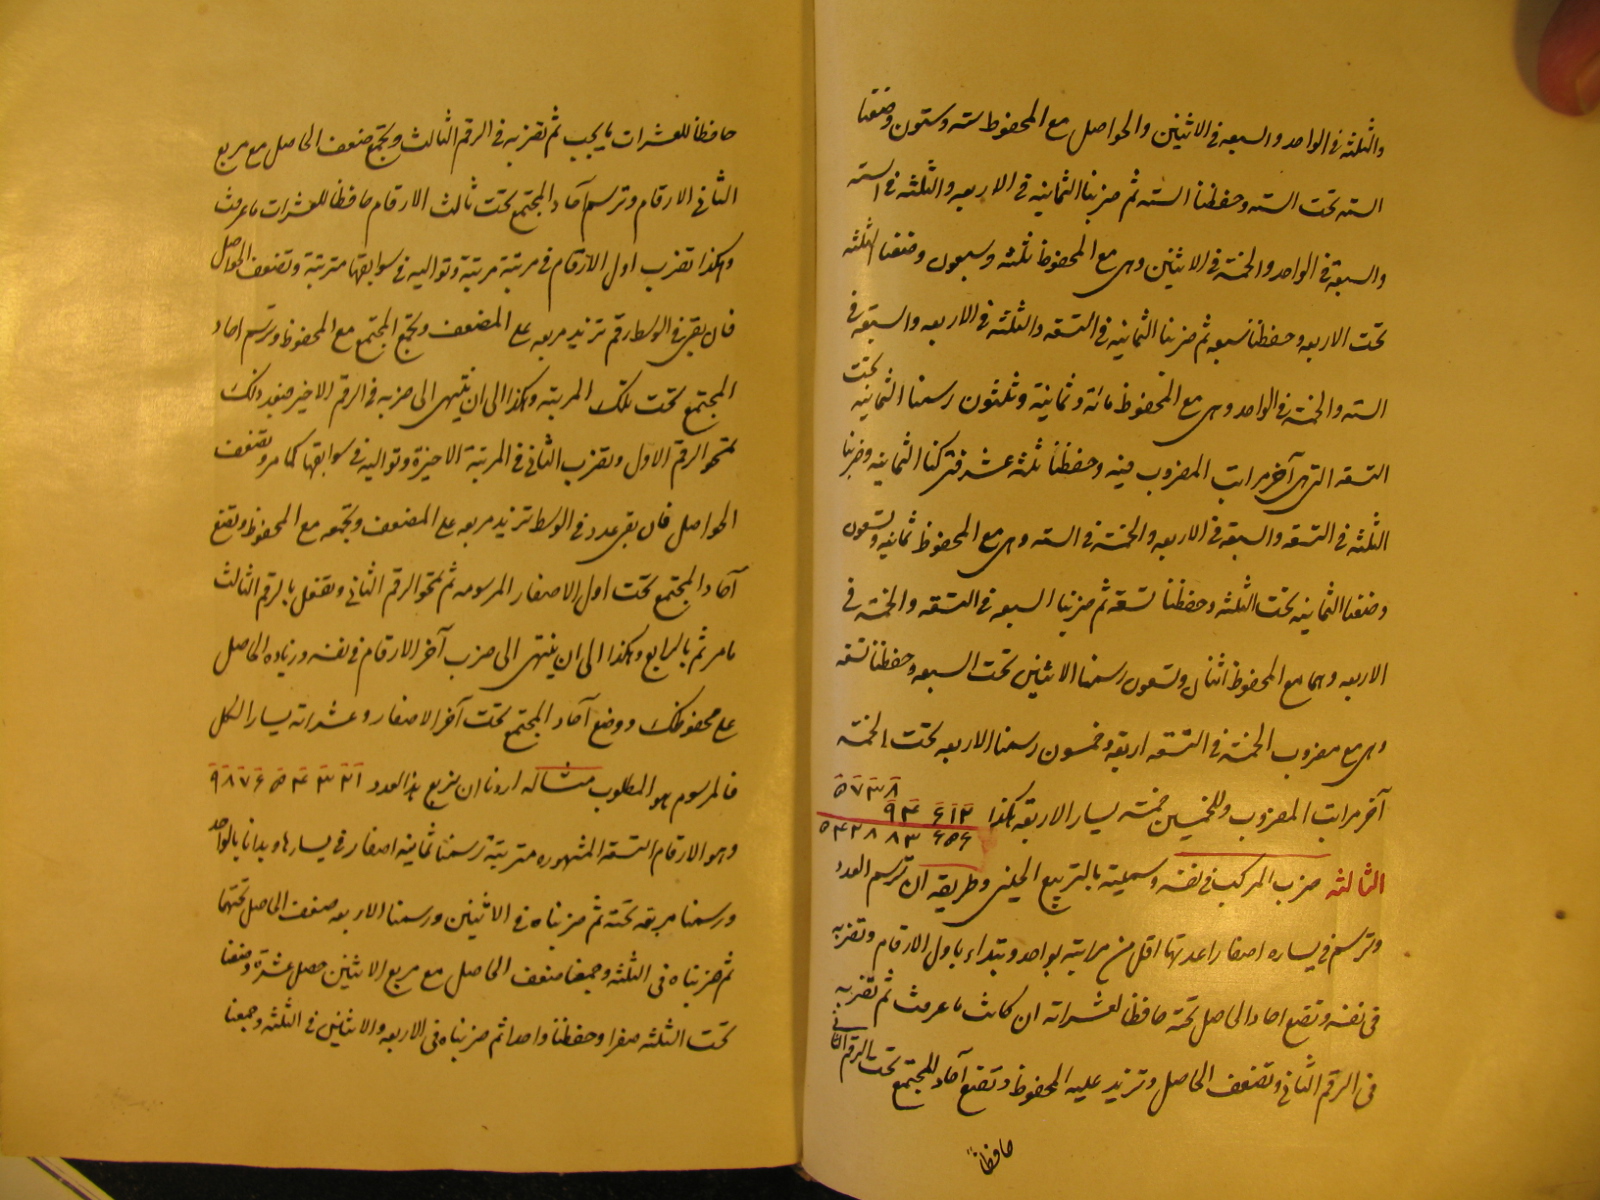 والثلثه فى الواحد والسبعه فى الاثنين والحواصل مع المحفوظ سته وستون وضعنا
السته تحت السته وحفظنا السته ثم ضربنا الثمانيه فى الاربعه والثلثه فى السته
والسبعة فى الواحد والخمسة فى الاثنين وهى مع المحفوظ ثلثه وسبعون وضعنا الثلثه
تحت الاربعه وحفظنا سبعه ثم ضربنا الثمانيه فى التسعه والثلثه فى الاربعه والسبعة فى
السته والخمسة فى الواحد وهى مع المحفوظ مائة وثمانية وثلثون رسمنا الثمانيه تحت
التسعه التى هى آخر مراتب المضروب فيه وحفظنا ثلثه عشر فتركنا الثمانيه وضربنا
الثلثه فى التسعه والسبعة فى الاربعه والخمسة فى السته وهى مع المحفوظ ثمانيه وتسعون
وضعنا الثمانيه تحت الثلثه وحفظنا تسعة ثم ضربنا السبعه فى التسعه والخمسة فى
الاربعه وهما مع المحفوظ اثنان وتسعون رسمنا الاثنين تحت السبعه وحفظنا تسعه
وهى مع مضروب الخمسة فى التسعه اربعة وخمسون رسمنا الاربعه تحت الخمسة
آخر مراتب المضروب وللخمسين خمسة يسار الاربعة هكذا
۵۷۳۸
۹۴ ۶۱۲
۵۴۲۸۸۳ ۶۵۶
الثالثه ضرب المركب فى نفسه وسميته بالتربيع الجلى وطريقه ان ترسم العدد
وترسم فى يساره اصفارا عدتها اقل من مراتبه بواحد وتبتداء باول الارقام وتضربه
فى نفسه وتضع احاد الحاصل تحته حافظا لعشراته ان كانت ما عرفت ثم تضربه
فى الرقم الثانى وتضعف الحاصل وتزيد عليه المحفوظ وتضع آحاد المجتمع تحت الرقم الثانى
حافظاً
حافظا للعشرات ما يجب ثم تضربه فى الرقم الثالث وتجمع ضعف الحاصل مع مربع
الثانى الارقام وترسم آحاد المجتمع تحت ثالث الارقام حافظا للعشرات ما عرفت
وهكذا تضرب اول الارقام فى مرتبة مرتبة وتواليه فى سوابقها مترتبة وتضعف الحواصل
فان بقى فى الوسط رقم تزيد مربعه على المضعف وتجمع المجتمع مع المحفوظ وترسم احاد
المجتمع تحت تلك المرتبه وهكذا الى ان ينتهى الى ضربه فى الرقم الاخير فبعد ذلك
تمحو الرقم الاول وتضرب الثانى فى المرتبة الاخيرة وتواليه فى سوابقها كما مر وتضعف
الحواصل فان بقى عدد فى الوسط تزيد مربعه على المضعف وتجمعه مع المحفوظ وتضع
آحاد المجتمع تحت اول الاصفار المرسومه ثم تمحو الرقم الثانى وتفعل بالرقم الثالث
ما مر ثم بالرابع وهكذا الى ان ينتهى الى ضرب آخر الارقام فى نفسه وزيادة الحاصل
على محفوظك ووضع آحاد المجتمع تحت آخر الاصفار وعشراته يسار الكل
فالمرسوم هو المطلوب مثاله اردنا ان نربع هذا العدد ۹۸۷۶۵۴۳۲۱
وهو الارقام التسعه المشهوره مترتبة رسمنا ثمانيه اصفار فى يسارها وبدانا بالواحد
ورسمنا مربعه تحته ثم ضربناه فى الاثنين ورسمنا الاربعه ضعف الحاصل تحتهما
ثم ضربناه فى الثلثه وجمعنا ضعف الحاصل مع مربع الاثنين حصل عشرة وضعنا
تحت الثلثه صفرا وحفظنا واحدا ثم ضربناه فى الاربعه والاثنين فى الثلثه وجمعنا